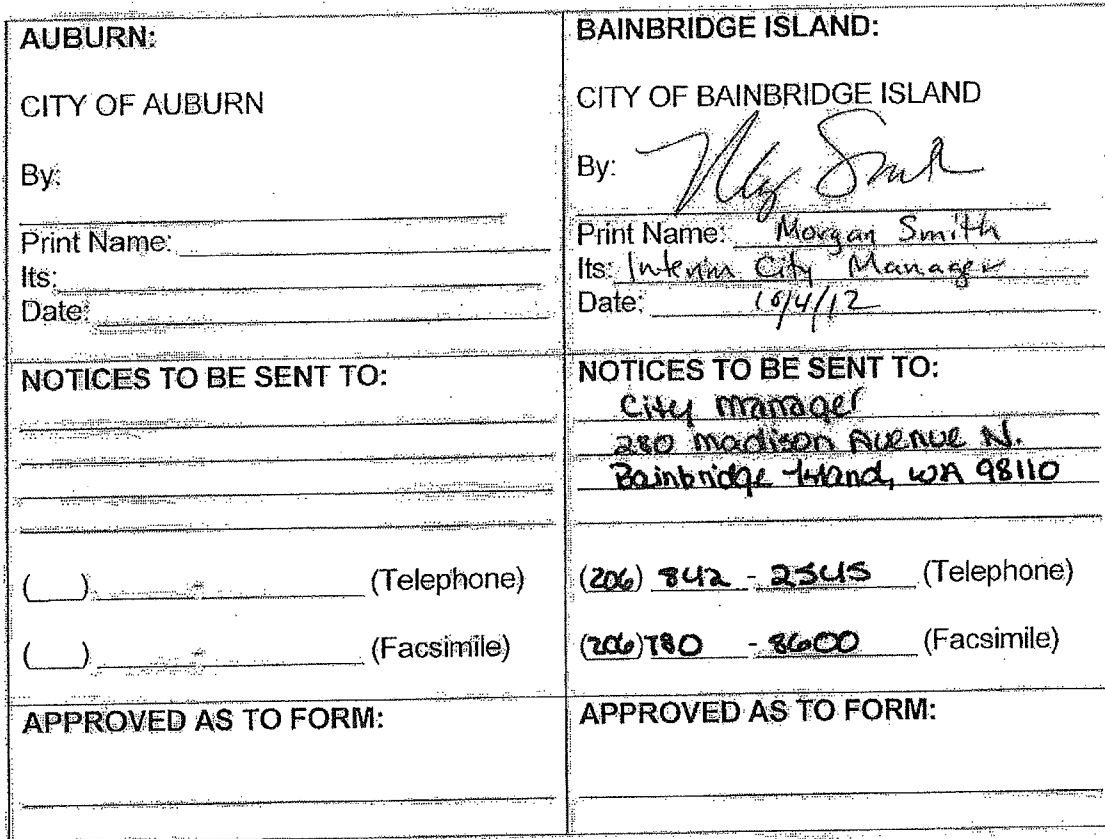 AUBURN:
CITY OF AUBURN
By:
Print Name:
Its:
Date:
NOTICES TO BE SENT TO:
( ) - (Telephone)
( ) - (Facsimile)
APPROVED AS TO FORM:
BAINBRIDGE ISLAND:
CITY OF BAINBRIDGE ISLAND
By: Smith
Print Name: Morgan Smith
Its: Interim City Manager
Date: 10/4/12
NOTICES TO BE SENT TO:
City Manager
280 Madison Avenue N.
Bainbridge Island, WA 98110
(206) 842 - 2545 (Telephone)
(206) 780 - 8600 (Facsimile)
APPROVED AS TO FORM: